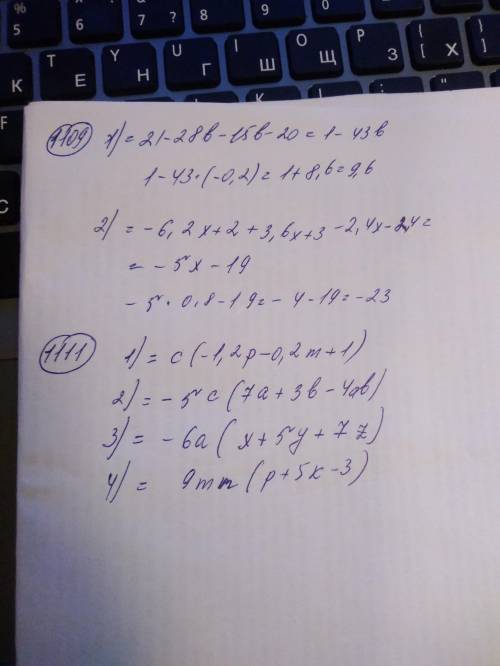 % 5 6 7 ? 8 9
К T Е Y Н U Г І Ш О Щ Р З { [ Х }
F
С
1109 1) = 21-28в-15в-20 = 1-43в
1-43·(-0,2) = 1+8,6=9,6
2) = -6,2x+2+3,6x+3-2,4x-24=
= -5x-19
-5·0,8-19=-4-19=-23
1111 1) = c(-1,2p-0,2m+1)
2) = -5c(7a+3в-4aв)
3) = -6a(x+5y+7z)
4) = 9mn(p+5k-3)